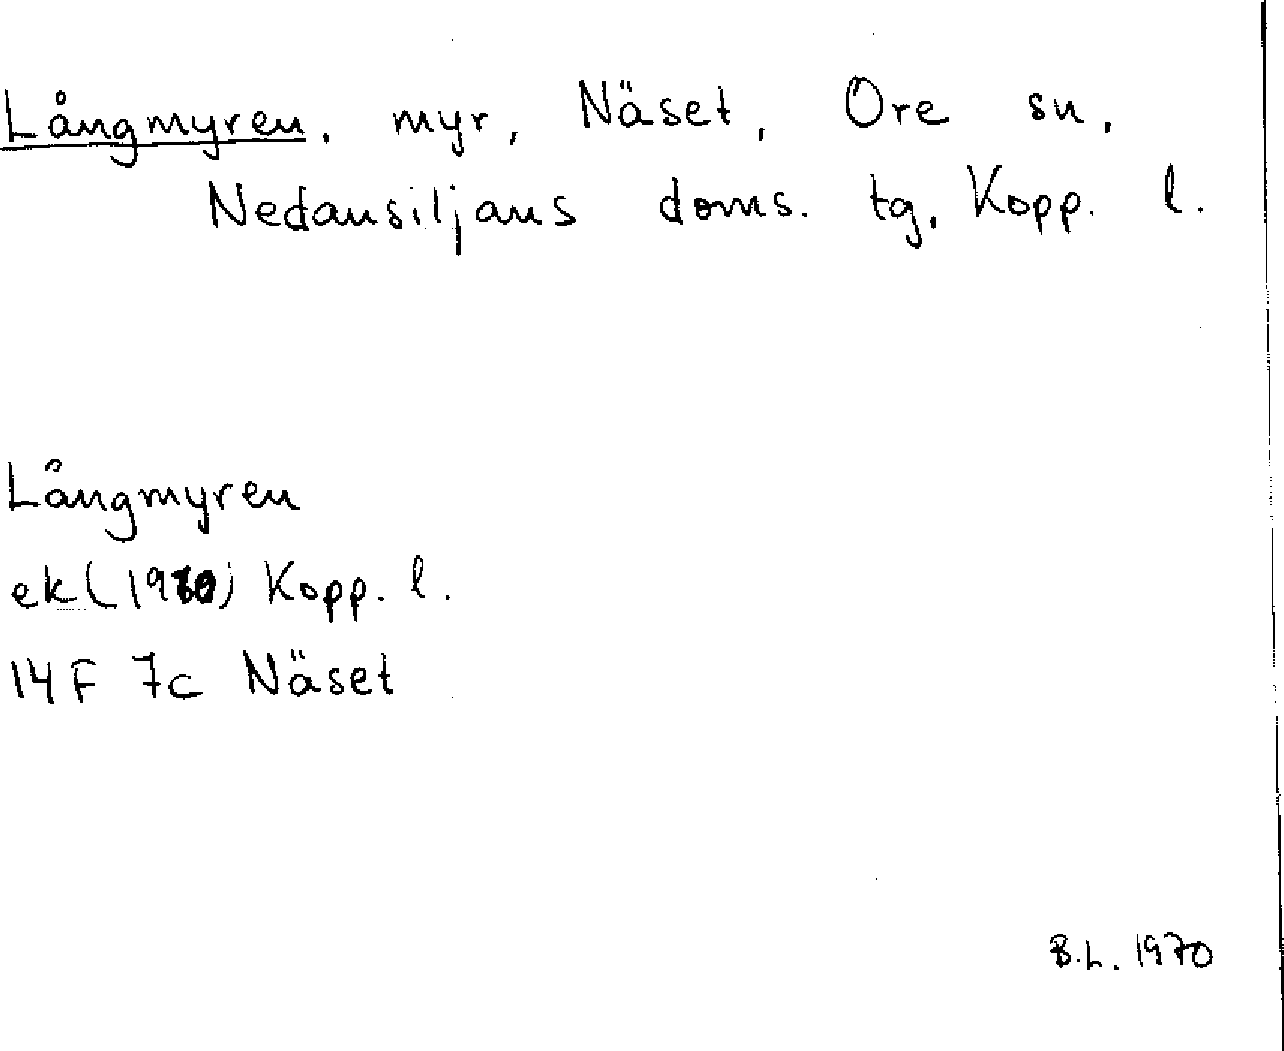 Långmyren, myr, Näset, Ore sn,
Nedansiljans doms. tg, Kopp. l.
Långmyren
ek Kopp. l.
14F 7c Näset
B.L. 1970